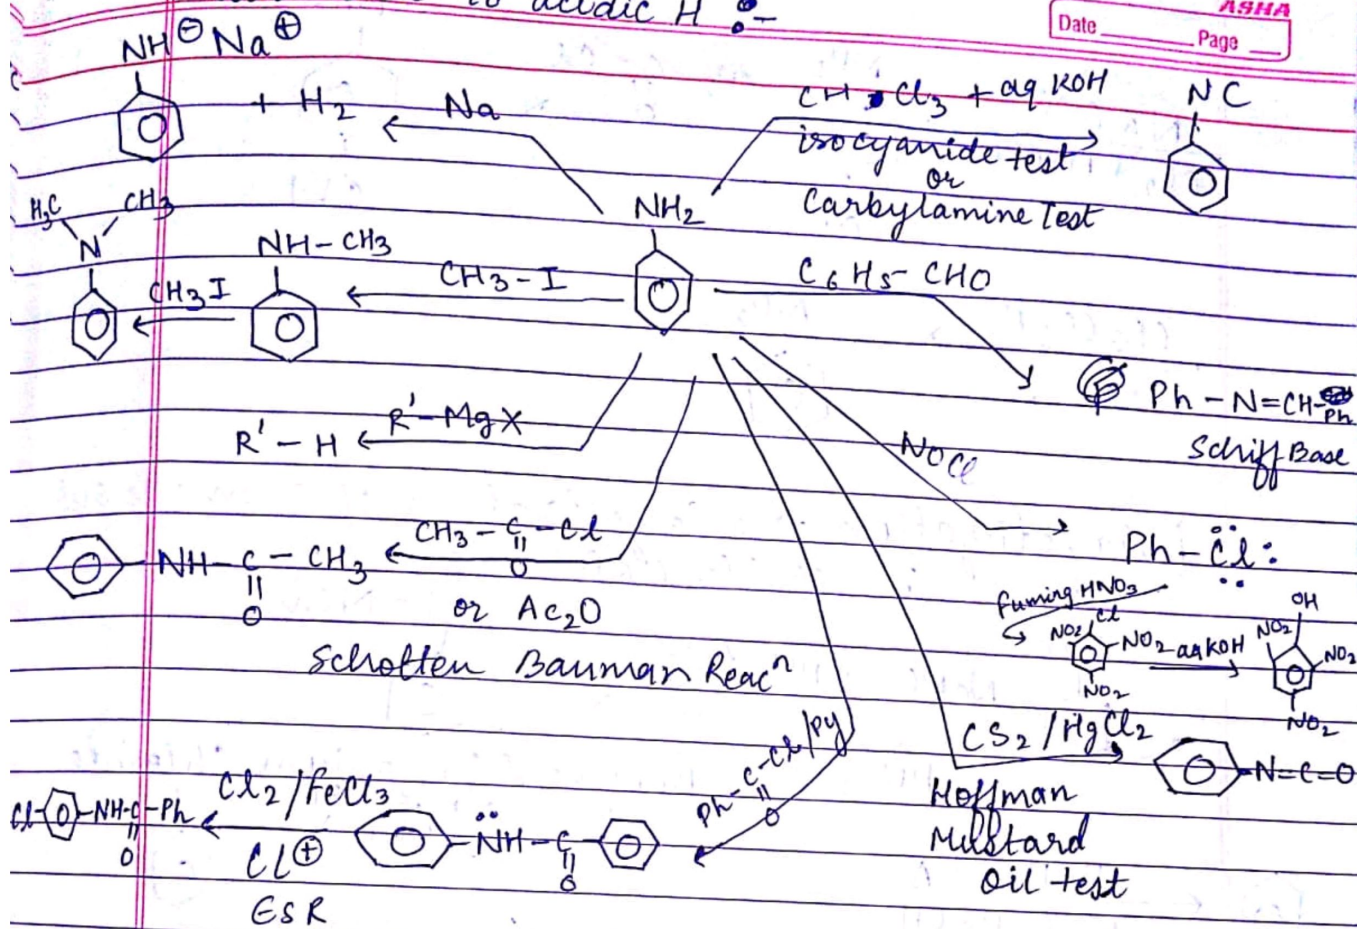 to acidic H :-
ASHA
Date Page
NH⊖ Na⊕
+ H2
Na
CH Cl3 + aq KOH
NC
isocyanide test
or
Carbylamine Test
H3C CH3
N
NH-CH3
NH2
CH3I
CH3-I
C6H5-CHO
Ph-N=CH-Ph
Schiff Base
R'-H
R'-MgX
NOCl
Ph-Cl:
CH3-C-Cl
O
NH-C-CH3
O
or Ac2O
Schotten Bauman Reacn
fuming HNO3
Cl
NO2 NO2
NO2
aq KOH
OH
NO2 NO2
NO2
CS2/HgCl2
N=C=O
Hoffman
Mustard
Oil test
Ph-C-Cl/Py
O
Cl2/FeCl3
Cl-NH-C-Ph
O
Cl⊕
NH-C
O
ESR